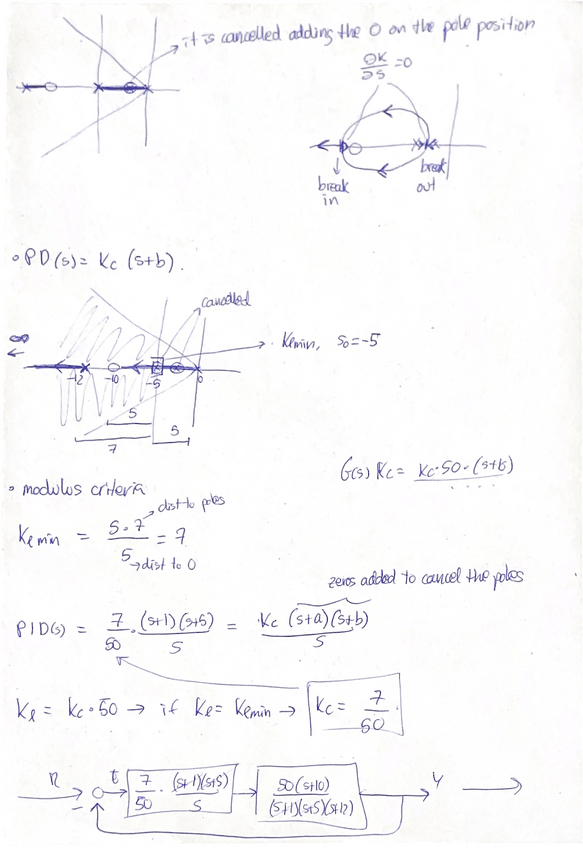 it is cancelled adding the 0 on the pole position
∂K/∂S = 0
break in
break out
∘ PD(s) = Kc (s+b).
cancelled
∞
-12 -10 -5 0
Kemin, s₀=-5
5
5
7
G(s) Kc = Kc·50·(s+b)
....
∘ modulus criteria
Kemin = 5·7/5 = 7
dist to poles
dist to 0
zeros added to cancel the poles
PID(s) = 7/50 · (s+1)(s+5)/s = Kc (s+a)(s+b)/s
Kl = Kc·50 → if Kl = Kemin → Kc = 7/50.
R E 7/50 · (s+1)(s+5)/s 50(s+10)/(s+1)(s+5)(s+12) Y
-